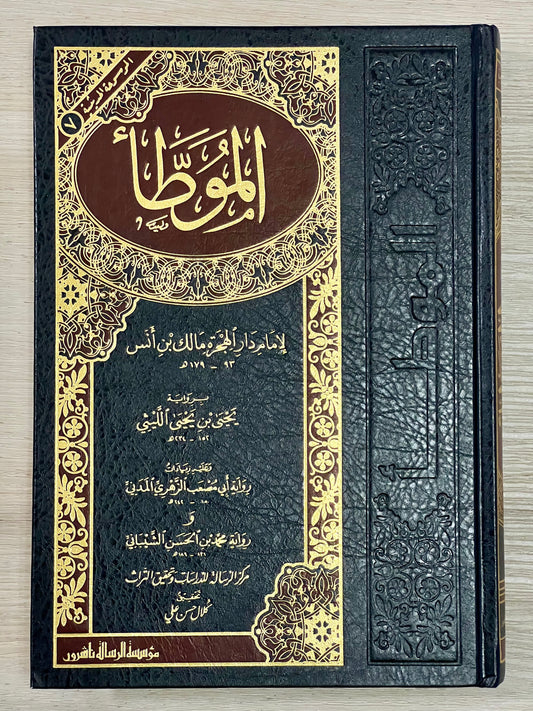 الموسوعة الحديثية
٧
الموطأ
لإمام دار الهجرة مالك بن أنس
٩٣ - ١٧٩هـ
برواية
يحيى بن يحيى الليثي
١٥٢ - ٢٣٤هـ
وعليه زيادات
رواية أبي مصعب الزهري المدني
١٥٠ - ٢٤٢هـ
و
رواية محمد بن الحسن الشيباني
١٣١ - ١٨٩هـ
مركز الرسالة للدراسات وتحقيق التراث
تحقيق
كلال حسن علي
مؤسسة الرسالة ناشرون
الموطأ